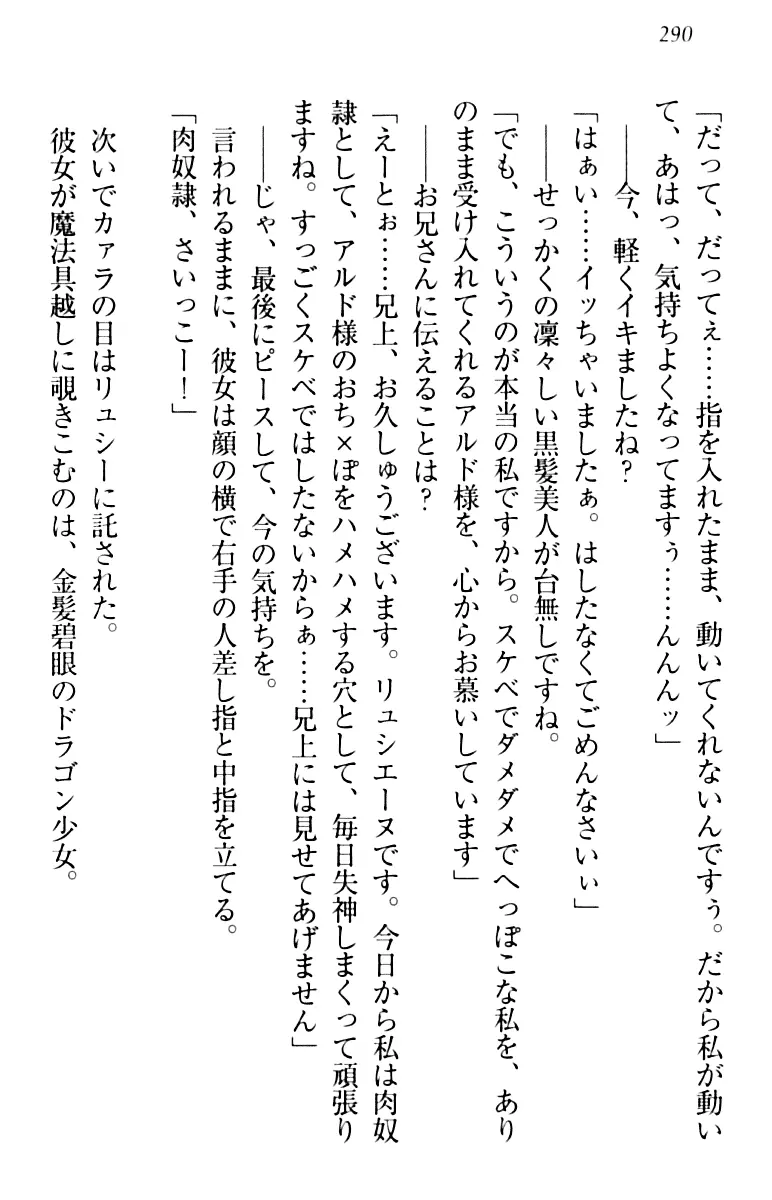 290
「だって、だってぇ……指を入れたまま、動いてくれないんですぅ。だから私が動い
て、あはっ、気持ちよくなってますぅ……んんんッ」
――今、軽くイキましたね?
「はぁい……イッちゃいましたぁ。はしたなくてごめんなさいぃ」
――せっかくの凛々しい黒髪美人が台無しですね。
「でも、こういうのが本当の私ですから。スケベでダメダメでへっぽこな私を、あり
のまま受け入れてくれるアルド様を、心からお慕いしています」
――お兄さんに伝えることは?
「えーとぉ……兄上、お久しゅうございます。リュシエーヌです。今日から私は肉奴
隷として、アルド様のおち×ぽをハメハメする穴として、毎日失神しまくって頑張り
ますね。すっごくスケベではしたないからぁ……兄上には見せてあげません」
――じゃ、最後にピースして、今の気持ちを。
言われるままに、彼女は顔の横で右手の人差し指と中指を立てる。
「肉奴隷、さいっこー!」
次いでカァラの目はリュシーに託された。
彼女が魔法具越しに覗きこむのは、金髪碧眼のドラゴン少女。